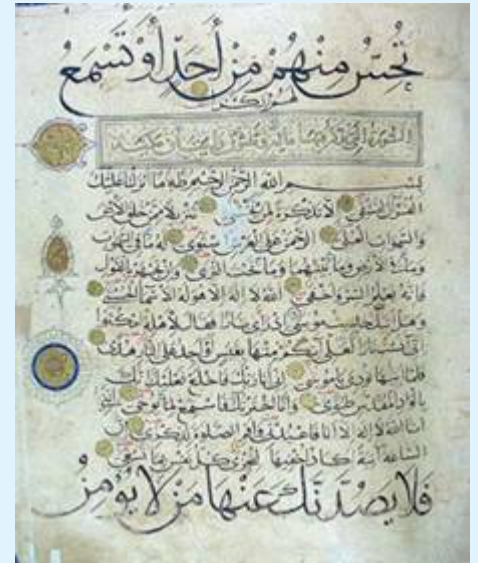 تُحِسُّ مِنْهُمْ مِنْ أَحَدٍ أَوْ تَسْمَعُ
لهم ركزا
السورة التي يذكر فيها مائة وثلثون وايتان مكية
بسم الله الرحمن الرحيم طه ما نزلنا عليك
القران لتشقى الا تذكرة لمن يخشى تنزيلا ممن خلق الارض
والسموات العلى الرحمن على العرش استوى له ما في السموات
وما في الارض وما بينهما وما تحت الثرى وان تجهر بالقول
فانه يعلم السر واخفى الله لا اله الا هو له الاسما الحسنى
وهل اتيك حديث موسى اذ راى نارا فقال لاهله امكثوا
انى انست نارا لعلى اتيكم منها بقبس او اجد على النار هدى
فلما اتيها نودى يا موسى انى انا ربك فاخلع نعليك انك
بالواد المقدس طوى وانا اخترتك فاستمع لما يوحى اننى
انا الله لا اله الا انا فاعبدنى واقم الصلوة لذكرى ان
الساعة اتية اكاد اخفيها لتجزى كل نفس بما تسعى
فَلَا يَصُدَّنَّكَ عَنْهَا مَنْ لَا يُؤْمِنُ